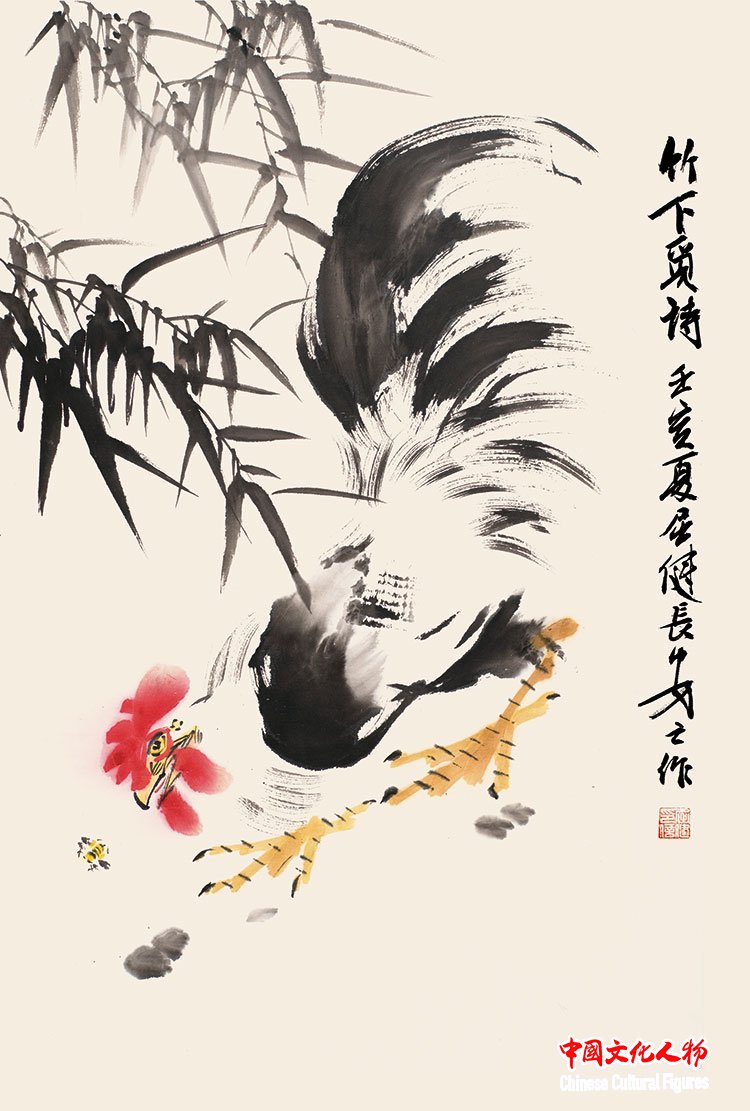 竹下覓詩 壬亥夏 居健長中安之作
中國文化人物
Chinese Cultural Figures